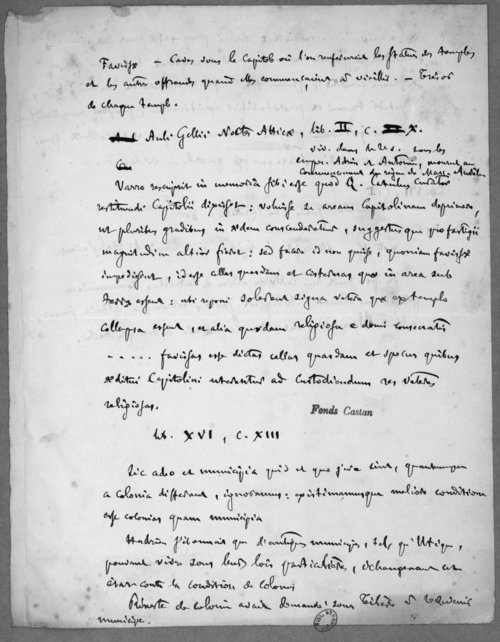 Favissæ – Caves sous le Capitole où l'on renfermait les statues des temples
et les autres offrandes quand elles commençaient à vieillir. – Trésor
de chaque temple.
Auli Gellii Noctes Atticæ, lib. II, c. X.
viv. dans le 2e s. sous les
emper. Adrien et Antonin, mourut au
commencement du règne de Marc-Aurèle.
Varro rescripsit in memoria sibi esse quod Q. Catulus curator
restituendi Capitolii dixisset: voluisse se aream Capitolinam deprimere,
ut pluribus gradibus in ædem conscenderetur, suggestusque pro fastigii
magnitudine altior fieret: sed facere id non quisse, quoniam favissæ
impedissent, id esse cellas quasdam et cisternas quæ in area sub
terra essent: ubi reponi solerent signa vetera quæ ex templo
collapsa essent, et alia quædam religiosa e donis consecratis
..... favissas esse dictas cellas quasdam et specus quibus
æditui Capitolini uterentur ad custodiendum res veteres
religiosas.
Fonds Castan
lib. XVI, c. XIII
Sic adeo et municipia quid et quo jure sint, quantumque
a colonia differant, ignoramus: existimamusque meliore conditione
esse colonias quam municipia
Hadrien s'étonnait que d'antiques municipes, tels qu'Utique,
pouvant vivre sous leurs lois particulières, échangeassent cet
état contre la condition de colonies
Préneste de colonie avait demandé sous Tibère à redevenir
municipe.